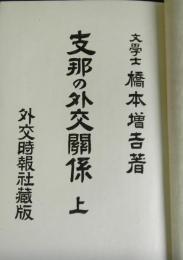 文學士 橋本増吉著
支那の外交關係 上
外交時報社藏版